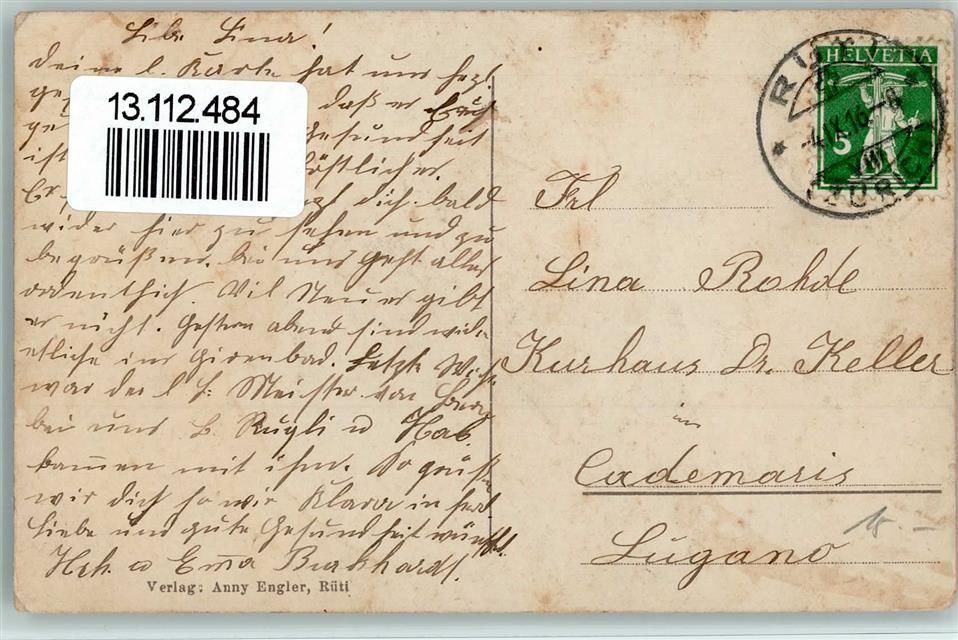 Liebe Lina!
deine l. Karte hat uns herzl.
daß er Euch
Gesundheit
ist köstlicher.
dich bald
wider hier zu sehen und zu
begrüßen. bei uns geht alles
ordentlich. Vil Neues gibt
es nicht. Gestern abend sind wider
etliche ins Girenbad. Letzte Woche
war der l. Meister von
bei uns B. Rügli u
kamen mit ihm. So grüßen
wir dich so wie Klara in herzl
Liebe und gute Gesundheit wünscht.
Hch. u Emma Burkhardt.
Verlag: Anny Engler, Rüti
13.112.484
RUETI
4.IX.16
(ZÜRICH)
HELVETIA
5
Frl
Lina Rohde
Kurhaus Dr. Keller
in
Cademaris
Lugano